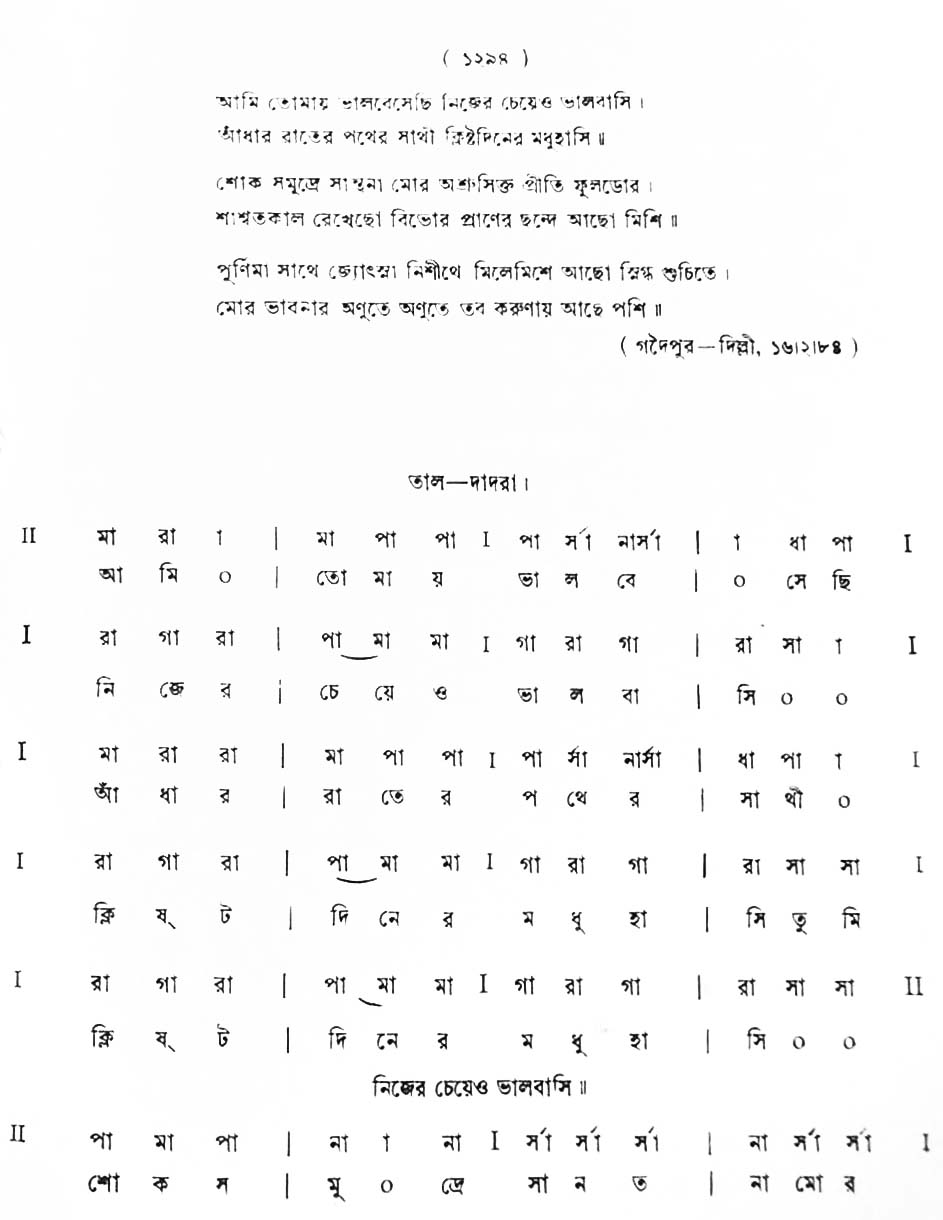 ( ১২৯৪ )
আমি তোমায় ভালবেসেছি নিজের চেয়েও ভালবাসি ।
আঁধার রাতের পথের সাথী ক্লিষ্টদিনের মধুহাসি ॥
শোক সমুদ্রে সান্ত্বনা মোর অশ্রুসিক্ত প্রীতি ফুলডোর ।
শাশ্বতকাল রেখেছো বিভোর প্রাণের ছন্দে আছো মিশি ॥
পূর্ণিমা সাথে জ্যোৎস্না নিশীথে মিলেমিশে আছো স্নিগ্ধ শুচিতে ।
মোর ভাবনার অণুতে অণুতে তব করুণায় আছে পশি ॥
( গদৈপুর — দিল্লী, ১৬।২।৮৪ )
তাল—দাদরা ।
II মা রা া | মা পা পা I পা র্সা নার্সা | া ধা পা I
আ মি ০ | তো মা য় ভা ল বে | ০ সে ছি
I রা গা রা | পা মা মা I গা রা গা | রা সা া I
নি জে র | চে য়ে ও ভা ল বা | সি ০ ০
I মা রা রা | মা পা পা I পা র্সা নার্সা | ধা পা া I
আঁ ধা র | রা তে র প থে র | সা থী ০
I রা গা রা | পা মা মা I গা রা গা | রা সা সা I
ক্লি ষ্ ট | দি নে র ম ধু হা | সি তু মি
I রা গা রা | পা মা মা I গা রা গা | রা সা সা II
ক্লি ষ্ ট | দি নে র ম ধু হা | সি ০ ০
নিজের চেয়েও ভালবাসি ॥
II পা মা পা | না া না I র্সা র্সা র্সা | না র্সা র্সা I
শো ক স | মু ০ দ্রে সা ন ত | না মো র